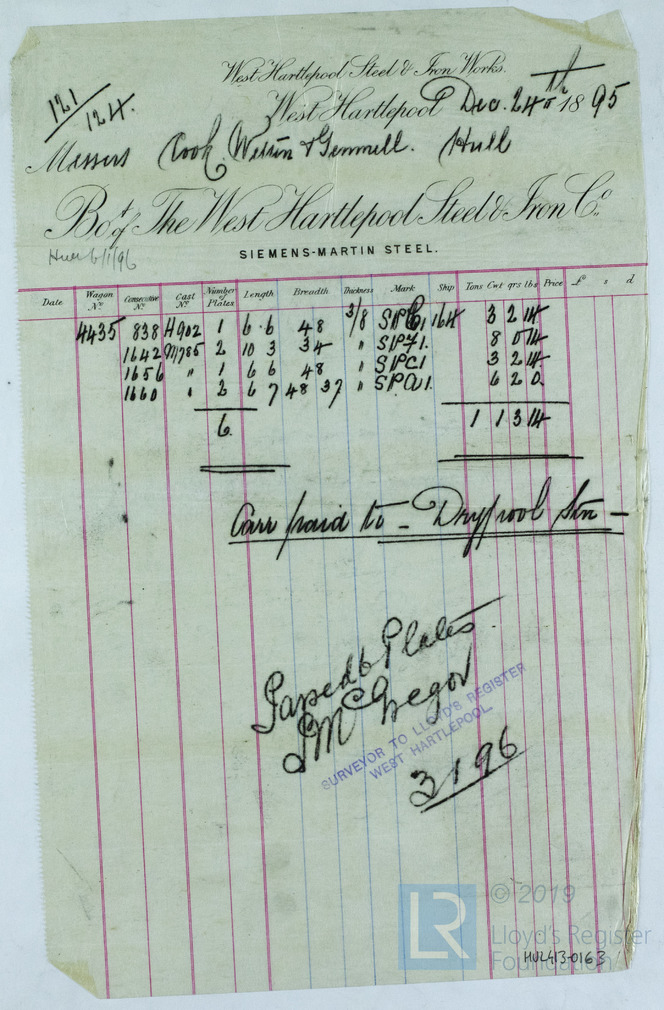 West Hartlepool Steel & Iron Works.
121
124.
West Hartlepool Dec. 24th 1895
Messrs Cook, Welton & Gemmell. Hull
Bot. of The West Hartlepool Steel & Iron Co.,
Hull 6/1/96
SIEMENS-MARTIN STEEL.
Date Wagon No. Consecutive No. Cast No. Number of Plates Length Breadth Thickness Mark Ship Tons Cwt qrs lbs Price £ s d
4435 838 H902 1 6 6 48 3/8 164 3 2 14
1642 M785 2 10 3 34 " SPF1. 8 0 14
1656 " 1 6 6 48 " SPC1 3 2 14
1660 " 2 6 7 48 37 " SPA1. 6 2 0
6. 1 1 3 14
Carr paid to - Drypool Stn -
Passed 6 Plates.
J McGregor
SURVEYOR TO LLOYD'S REGISTER
WEST HARTLEPOOL.
3 1 96
LR
© 2019
Lloyd's Register
Foundation
HUL413-0163